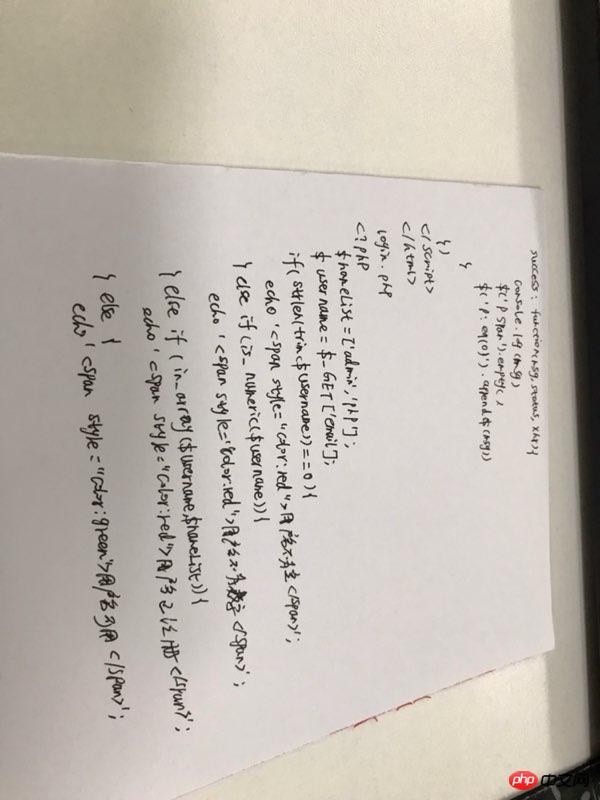 success: function(msg,status,xhr){
console.log(msg)
$('p span').empty()
$('p:eq(0)').append($(msg))
}
})
</script>
</html>
login.php
<?php
$nameList=['admin','php'];
$username=$_GET['email'];
if(strlen(trim($username))==0){
echo '<span style="color:red">用户名不为空</span>';
} else if(is_numeric($username)){
echo '<span style="color:red">用户名不为数字</span>';
} else if(in_array($username,$nameList)){
echo '<span style="color:red">用户名已注册</span>';
} else {
echo '<span style="color:green">用户名可用</span>';
php 中文网